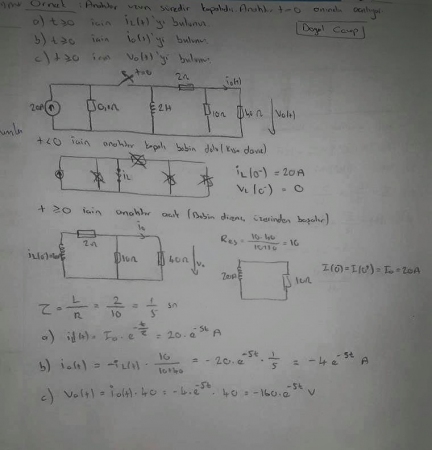 Örnek : Anahtar uzun süredir kapalıdır. Anahtar t=0 anında açılıyor.
a) t≥0 için iL(t)'yi bulunuz.
[Doğal Cevap]
b) t≥0 için io(t)'yi bulunuz.
c) t≥0 için Vo(t)'yi bulunuz.
t=0
2Ω
io(t)
20A
0,1Ω
2H
10Ω
40Ω
Vo(t)
t<0 için anahtar kapalı bobin dolu (kısa devre)
iL
iL(0⁻) = 20A
VL(0⁻) = 0
t ≥0 için anahtar açık (Bobin direnç üzerinden boşalır)
2Ω
io
10Ω
40Ω
Vo
Reş = 10.40 / 10+40 = 10
20A
10Ω
I(0) = I(0⁻) = Io = 20A
τ = L/R = 2/10 = 1/5 sn
a) iL(t) = Io . e^(-t/τ) = 20 . e^(-5t) A
b) io(t) = -iL(t) . 10/10+40 = -20.e^(-5t) . 1/5 = -4 e^(-5t) A
c) Vo(t) = io(t) . 40 = -4.e^(-5t) . 40 = -160.e^(-5t) V